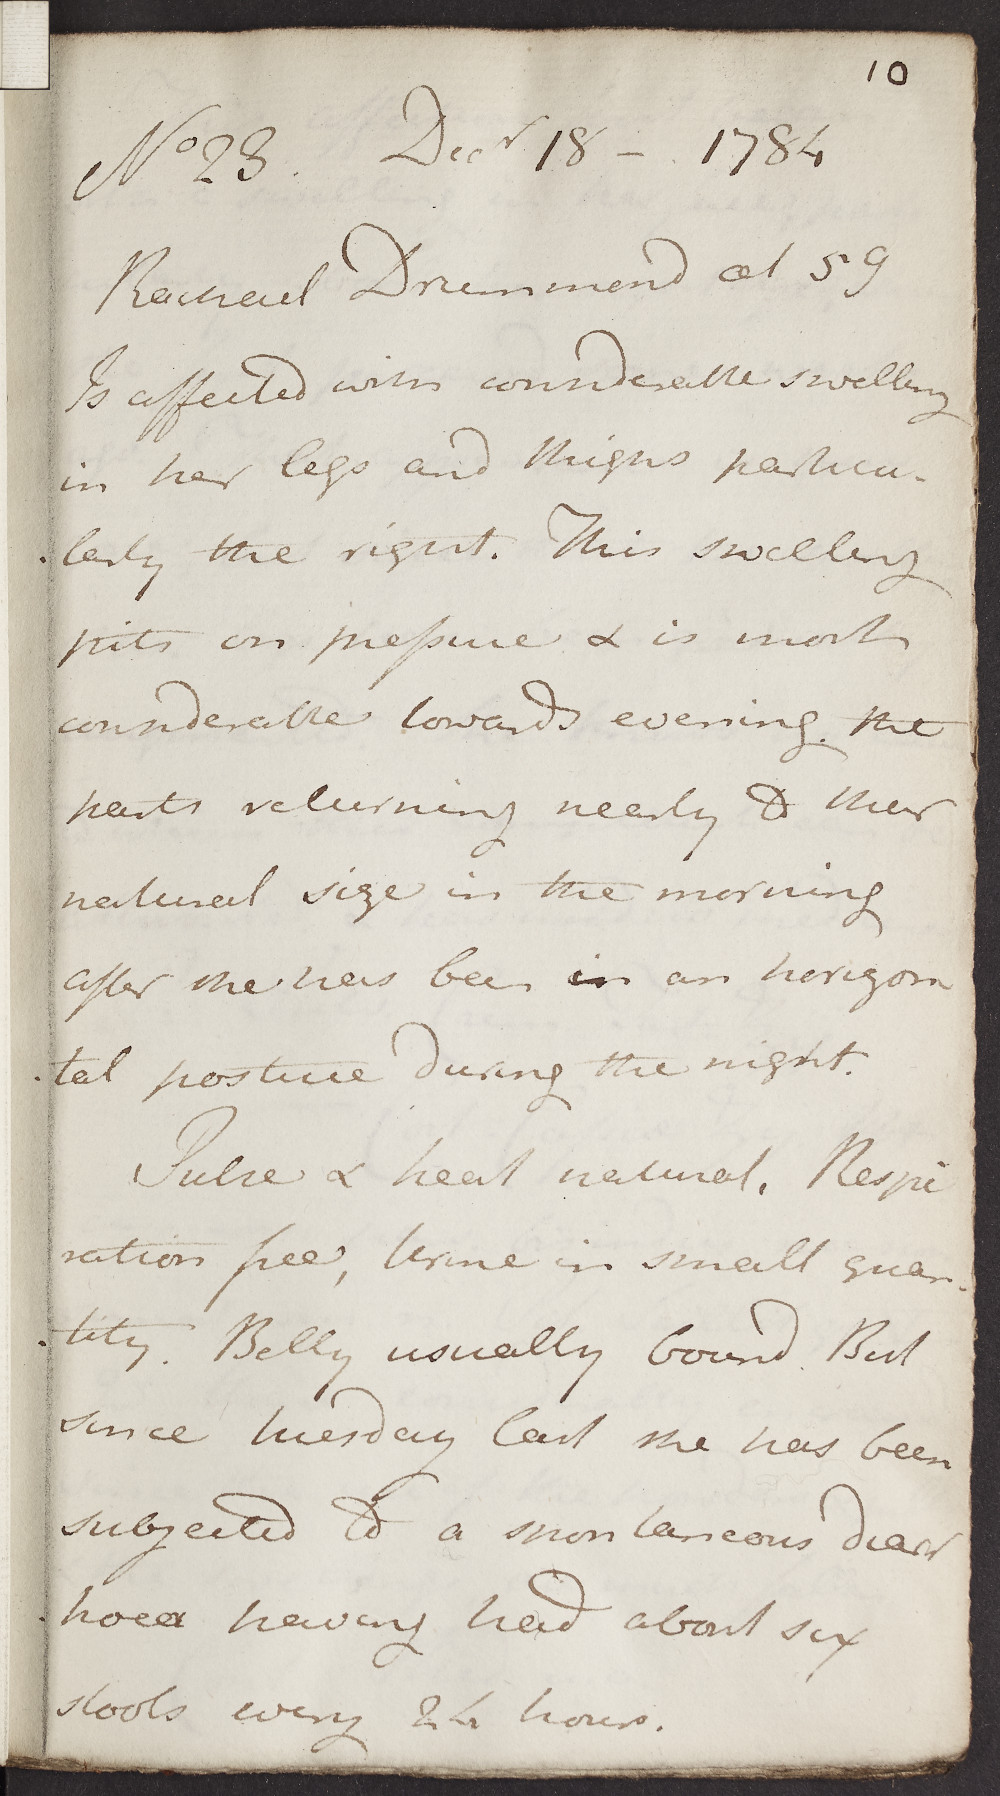 10
No 23. Decr 18 - 1784
Rachael Drummond æt 59
Is affected with considerable swelling
in her legs and thighs particu-
larly the right. This swelling
pits on preſsure & is most
considerable towards evening. the
parts returning nearly to their
natural size in the morning
after she has been in an horizon
tal posture during the night.
Pulse & heat natural. Respi
ration free, Urine in small quan-
tity. Belly usually bound. But
since tuesday last she has been
subjected to a spontaneous diarr
hoea having had about six
stools every 24 hours.